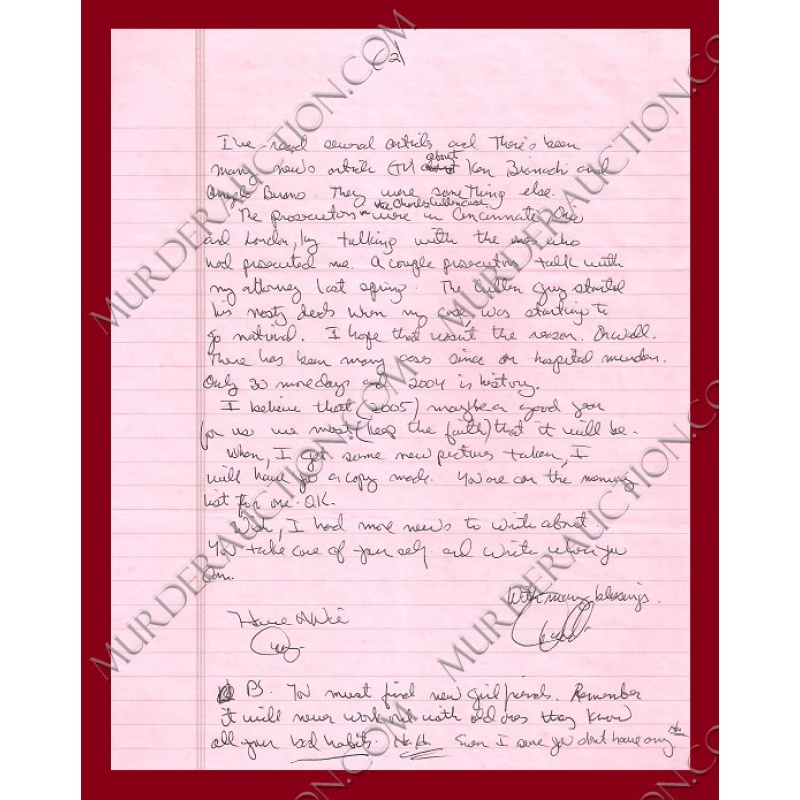 (2)
I've read several articls and There's been
many news article (TV) about Ken Bianachi and
Angelo Buono. They were something else.
The prosecutors in the Charles Cullen case were in Cincinnate, Ohio
and London, Ky talking with the ones who
had prosecuted me. A couple prosecutors talk with
my attorney last spring. The Cullen guy started
his nasty deeds when my case, was starting to
go natural. I hope that wasn't the reason. Oh well.
There has been many cases since on hospital murders.
Only 30 more days and 2004 is history.
I believe that (2005) maybe a good year
for us we most (keep the faith) that it will be.
When, I get some new pictures taken, I
will have you a copy made. You are on the
list for one. OK.
Wish, I had more news to write about.
You take care of your self and write when you
can.
With many blessings.
Have A Nice
Day.
PS. You must find new girlfriends. Remember
it will never work out with old ones they know
all your bad habits. Ha. Ha. Even I sure you don't have any.
MURDERAUCTION.COM